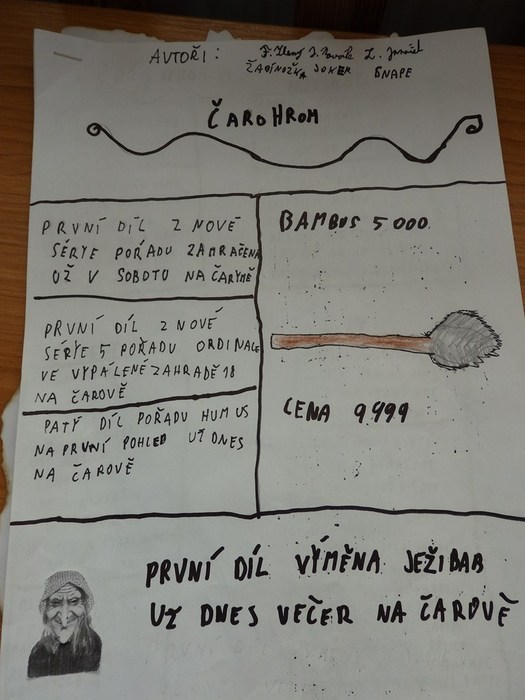 AVTOŘI:
ŽABÍNOŽKA JOKER SNAPE
ČAROHROM
PRVNÍ DÍL Z NOVÉ
SÉRYE POŘADU ZAMRAČENA
UŽ V SOBOTU NA ČARYMĚ
PRVNÍ DÍL Z NOVÉ
SÉRYE 5 POŘADU ORDINACE
VE VYPÁLENÉ ZAHRADĚ 18
NA ČAROVĚ
PATÝ DÍL POŘADU HUMUS
NA PRVNÍ POHLED UŽ DNES
NA ČAROVĚ
BAMBUS 5 000
CENA 9 999
PRVNÍ DÍL VÝMĚNA JEŽIBAB
UŽ DNES VEČER NA ČAROVĚ